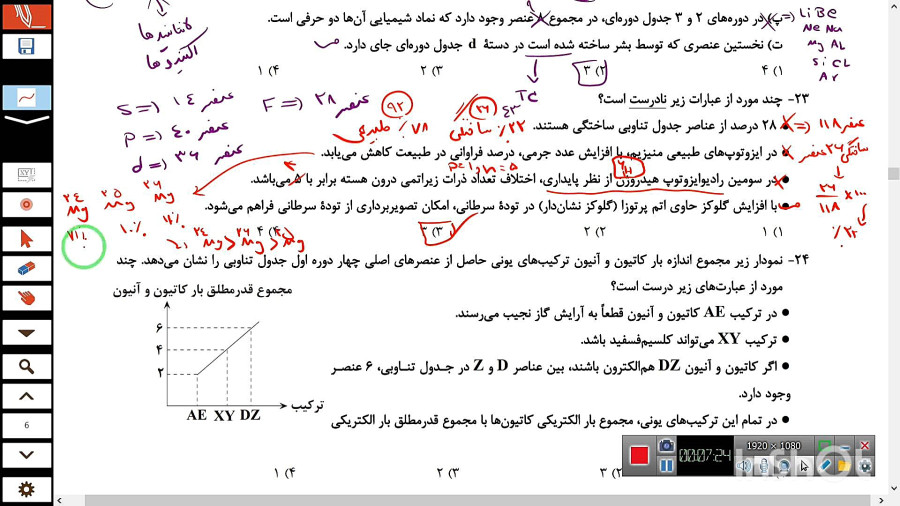 پ) در دوره‌های ۲ و ۳ جدول دوره‌ای، در مجموع ۸ عنصر وجود دارد که نماد شیمیایی آن‌ها دو حرفی است.
۹
LiBe
Ne Na
Mg AL
Si CL
Ar
ت) نخستین عنصری که توسط بشر ساخته شده است در دستهٔ d جدول دوره‌ای جای دارد.
۱) ۴
۲) ۳
۳) ۲
۴) ۱
لانتانیدها
اکتینیدها
Tc
۴۳
S => ۱۴ عنصر
F => ۲۸ عنصر
P => ۴۰ عنصر
d => ۳۶ عنصر
۲۳- چند مورد از عبارات زیر نادرست است؟
۹۲
۲۶
٪۷۸ طبیعی
٪۲۲ ساختگی
● ۲۸ درصد از عناصر جدول تناوبی ساختگی هستند.
۱۱۸ عنصر
۲۶ عنصر ساختگی
۲۶
۱۱۸
×۱۰۰
٪۲۲
● در ایزوتوپ‌های طبیعی منیزیم، با افزایش عدد جرمی، درصد فراوانی در طبیعت کاهش می‌یابد.
P=1, n=۵
● در سومین رادیوایزوتوپ هیدروژن از نظر پایداری، اختلاف تعداد ذرات زیراتمی درون هسته برابر با ۵ می‌باشد.
● با افزایش گلوکز حاوی اتم پرتوزا (گلوکز نشان‌دار) در تودهٔ سرطانی، امکان تصویربرداری از تودهٔ سرطانی فراهم می‌شود.
۱) ۱
۲) ۲
۳) ۳
۴) ۴
۲۴Mg ۲۵Mg ۲۶Mg
۱۰٪
۲۴Mg > ۲۶Mg > ۲۵Mg
۲۴- نمودار زیر مجموع اندازه بار کاتیون و آنیون ترکیب‌های یونی حاصل از عنصرهای اصلی چهار دوره اول جدول تناوبی را نشان می‌دهد. چند
مورد از عبارت‌های زیر درست است؟
● در ترکیب AE کاتیون و آنیون قطعاً به آرایش گاز نجیب می‌رسند.
● ترکیب XY می‌تواند کلسیم‌فسفید باشد.
● اگر کاتیون و آنیون DZ هم‌الکترون باشند، بین عناصر D و Z در جدول تناوبی، ۶ عنصر
وجود دارد.
● در تمام این ترکیب‌های یونی، مجموع بار الکتریکی کاتیون‌ها با مجموع قدرمطلق بار الکتریکی
مجموع قدرمطلق بار کاتیون و آنیون
۶
۴
۲
AE XY DZ
ترکیب
۲) ۳
۳) ۲
۴) ۱
XYZ
6
00:07:24
1920 × 1080
InShOt